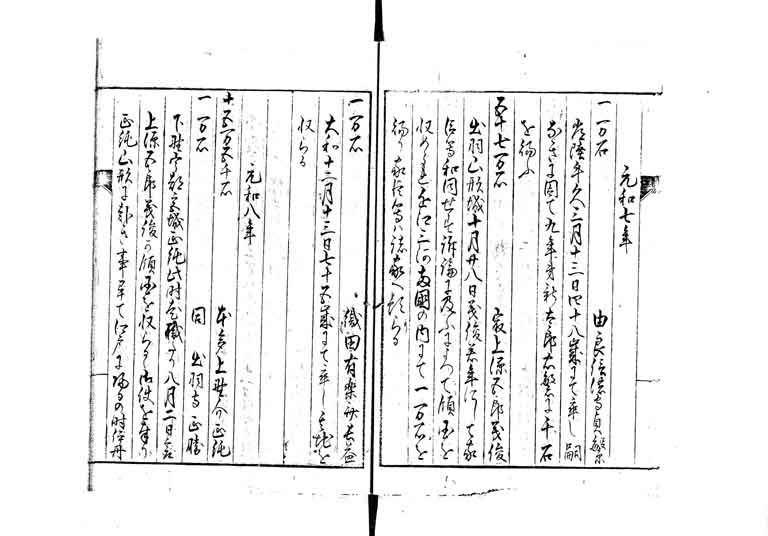 元和七年
一一万石 由良信濃守貞繁
常陸牛久三月十三日四十八歳にて卒し嗣
なきに因て九年弟新六郎忠繁に千石
を賜ふ
五十七万石 最上源五郎義俊
出羽山形城十月廿八日義俊若年にして家
臣等和同せず訴論に及ふによつて領国を
収められ近江三河両国の内にて一万石を
賜り家臣等は諸家へ預らる
一一万石 織田有楽斎長益
大和十二月十三日七十五歳にて卒し其地を
収らる
元和八年
十五万五千石 本多上野介正純
一一万石 同 出羽守正勝
下野宇都宮城正純此時老職たり八月二日
上源五郎義俊の領国を収らる御使を奉り
正純山形に赴き事畢て江戸に帰るの時伊丹